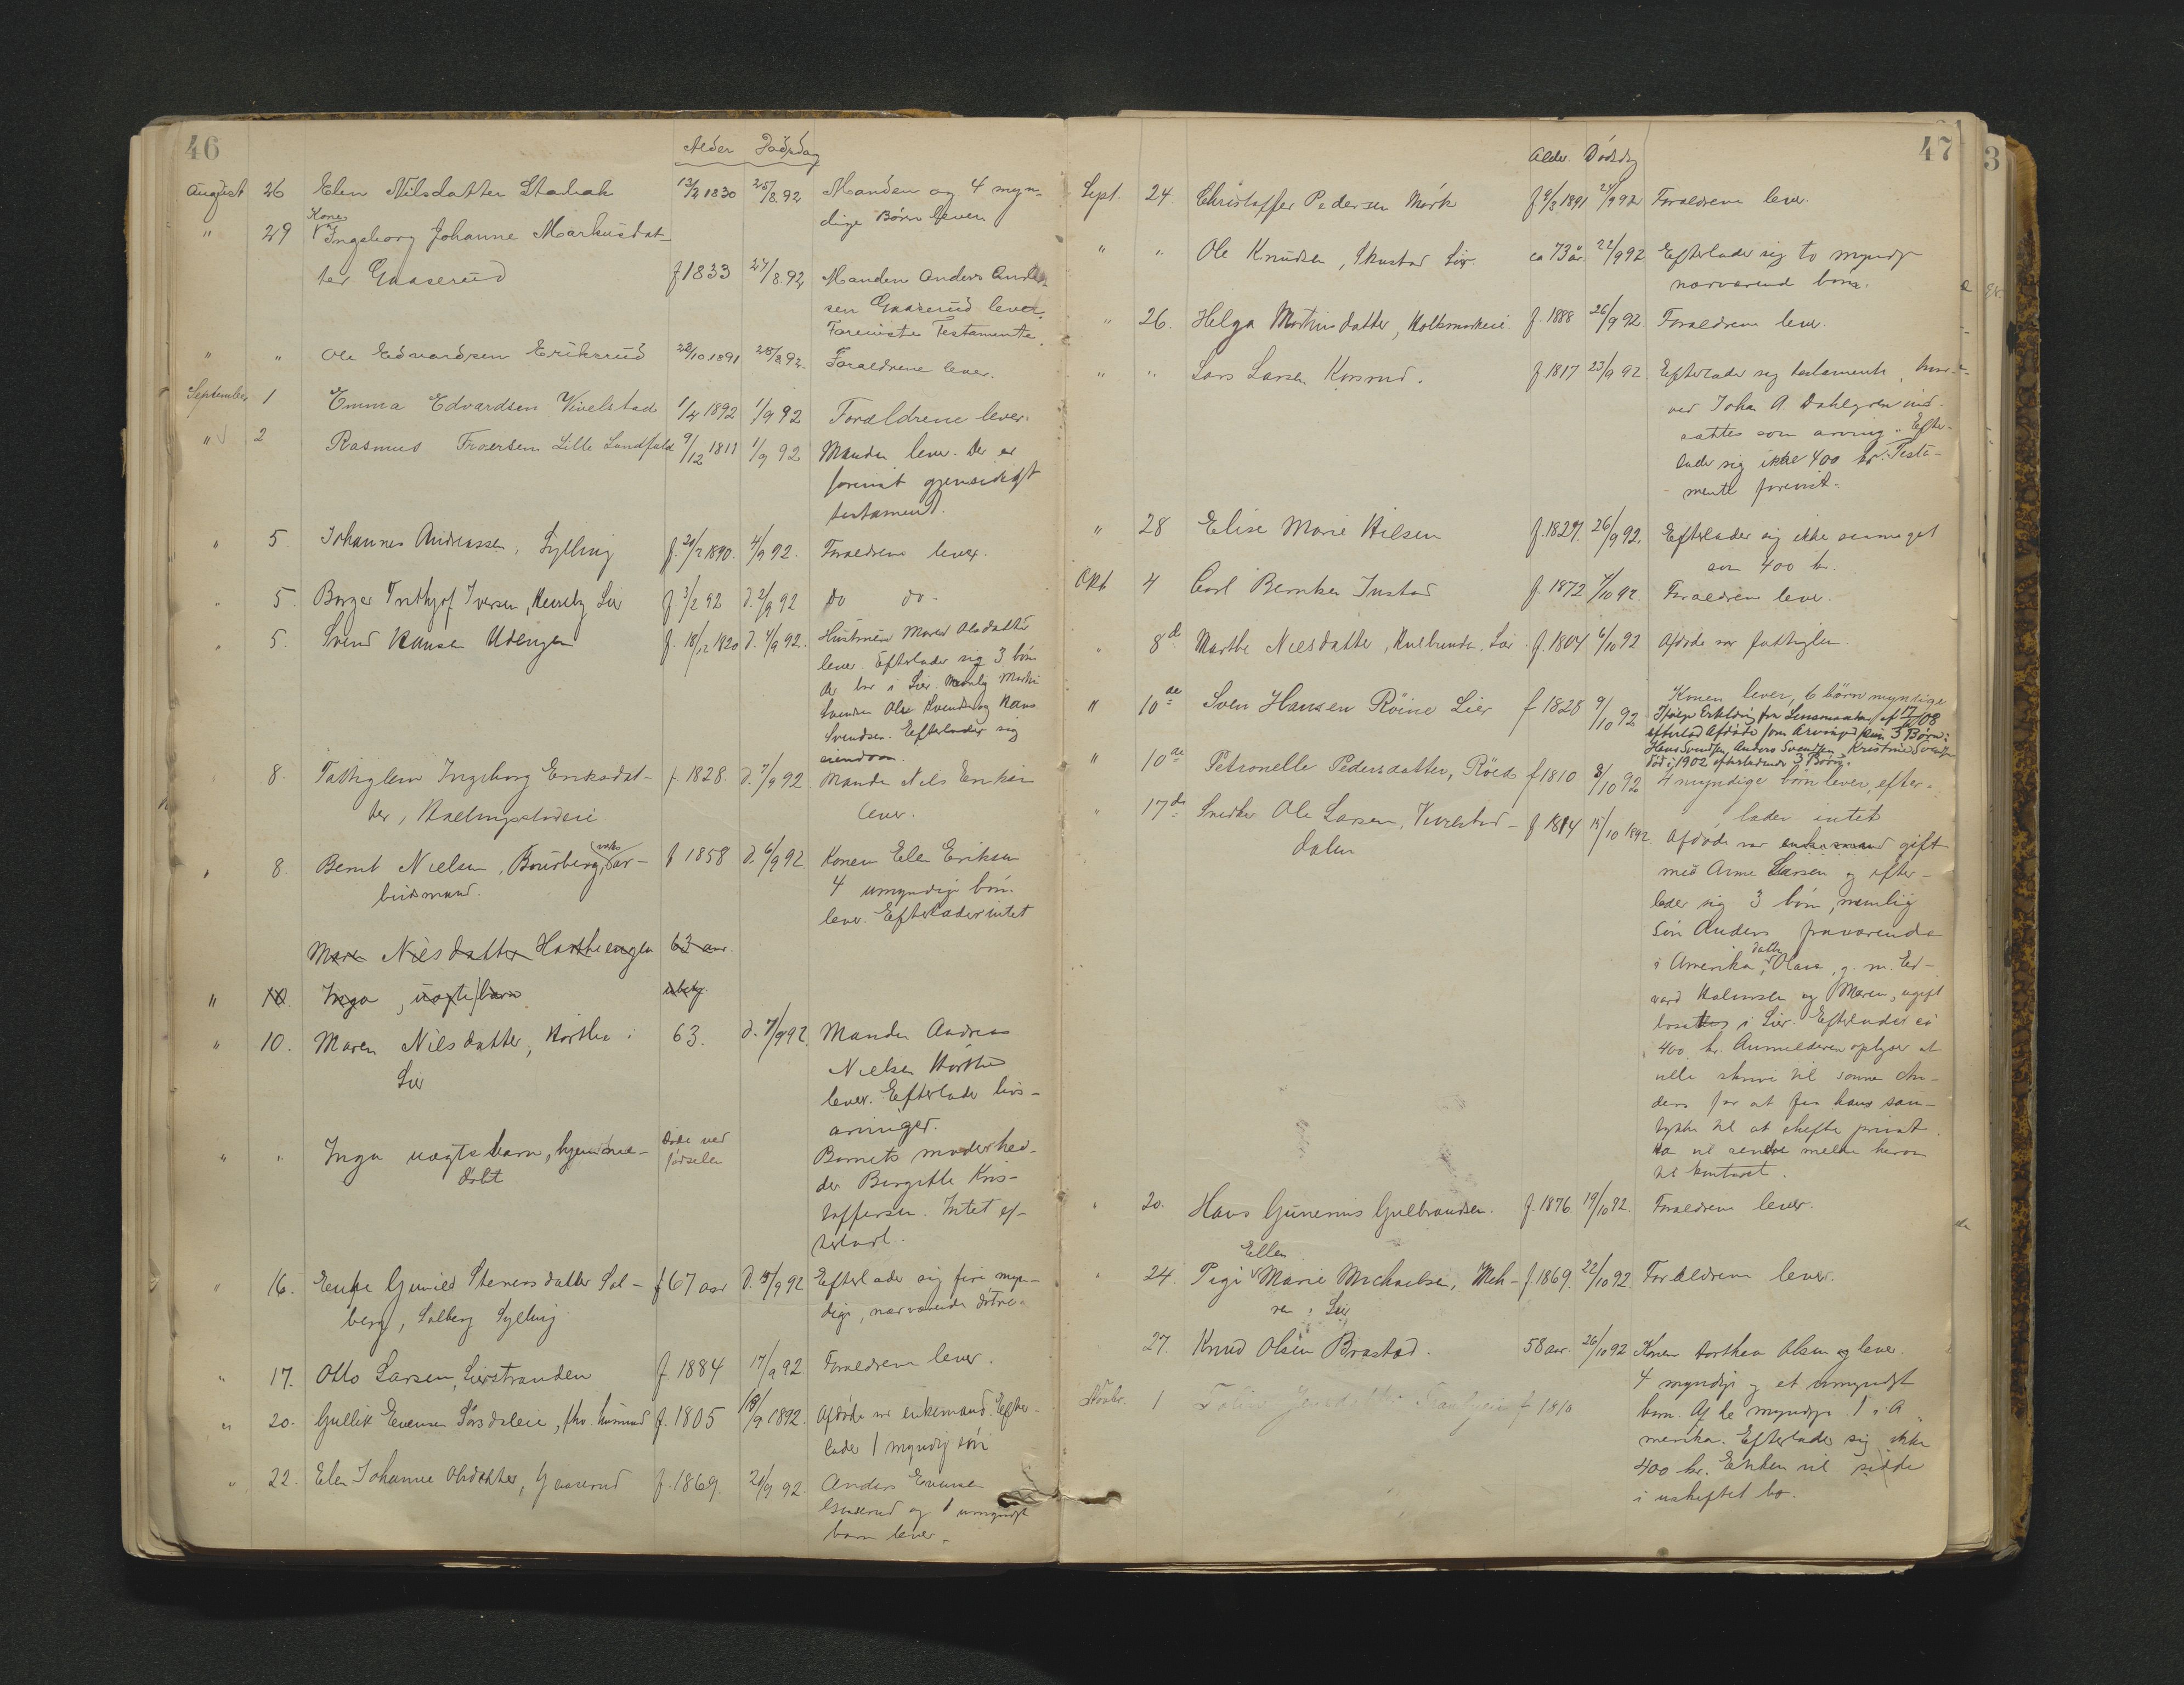 46
Alder Dødsdag
August 26 Elen Nilsdatter Stabæk 13/4 1830 25/8 92 Manden og 4 myn-
dige Børn lever
Kone
" 29 Ingeborg Johanne Markusdat-
ter Gaaserud f 1833 27/8 92 Manden Anders Andr
sen Gaaserud lever.
Foreviste Testamente.
" " Ole Edvardsen Eriksrud 28/10 1891 28/8 92. Forældrene lever.
September 1 Emma Edvardsen Vivelstad 1/4 1892 1/9 92 Forældrene lever.
" 2 Rasmus Lille Landfald 9/12 1811 1/9 92 Manden lever. Der er
forevist gjensidigt
testament.
" 5 Johannes Andreassen, Sylling f. 20/7 1890. 4/9 92. Forældrene lever.
" 5. Borger Frithjof Iversen, Lier f. 3/2 92 d. 2/9 92 do do-
" 5. Svend Hansen Udengen f. 18/12 1820 d. 4/9 92. Hustruen Maren Olsdatter
lever. Efterlader sig 3 børn
der bor i Lier. Nemlig
Svendsen Olse Svendsen og Hans
Svendsen. Efterlader sig
eiendom.
8. Fattiglem Ingeborg Eriksdat- f. 1828. d. 7/9 92 Manden Nils Eriksen
ter, lever.
" 8. Bernt Nielsen, ar- f 1858 d. 6/9 92 Konen Elen Eriksen
beidsmand. 4 umyndige børn.
lever. Efterlader intet
Maren Nilsdatter Hartheengen 63 aar.
" 10. Inga, uægte barn ubetg.
" 10. Maren Nilsdatter, Hørthe i 63. d. 7/9 92. Manden Andreas
Lier Nielsen Hørthe
lever. Efterlader livs-
arvinger.
" " Inga uægte barn, hjemme- Døde ved Barnets moder hed-
døbt fødselen der Birgitte Kris-
toffersen. Intet ef-
terladt.
" 16. Enke Gunild Steners datter Sol- f 67 aar d. 15/9 92 Efterlader sig fire myn-
berg, Solberg Sylling dige, nærværende døtre.
" 17. Otto Larsen, Lierstranden f 1884 17/9 92. Forældrene lever.
" 20. Gullik Evensen Sørsdaleie, fhv. husmand f. 1805 18/9 1892. Afdøde var enkemand. Efter-
lader 1 myndig søn
" 22. Elen Johanne Olsdatter, Gaaserud f. 1869. 20/9 92. Anders Evensen
Gaaserud og 1 umyndigt
barn lever.
47
Alder. Dødsdag
Sept. 24. Christoffer Pedersen Mørk f 9/3 1891 21/9 92 Forældrene lever.
" " Ole Knudsen, Skustad Lier ca 73 år. 22/9 92 Efterlader sig to myndige
nærværende børn.
" 26. Helga Martinsdatter, f. 1888 26/9 92. Forældrene lever.
" " Lars Larsen Korsrud. f. 1817 23/9 92. Efterlader sig testamente, hvor-
ved Johan A. Dahlgren ind-
sattes som arving. Efter-
lader sig ikke 400 kr. Testa-
mente forevist.
" 28 Elise Marie Nilsen f. 1829. 26/9 92. Efterlader sig ikke saameget
som 400 kr.
Okt 4 Carl Berntsen Justad f. 1872 4/10 92. Forældrene lever.
" 8de Marthe Nilsdatter, Lier f. 1804 6/10 92 Afdøde var fattiglem.
" 10de Sven Hansen Röine Lier f 1828 9/10 92 Konen lever, 6 børn myndige
Ifølge Erklæring fra Lensmanden af 17/6 08
efterlod Afdøde som Arvinger kun 3 Børn:
Hans Svendsen, Anders Svendsen, Kristine Svendsen
død i 1902 efterladende 3 Børn.
" 10de Petronelle Pedersdatter, Röed f 1810 8/10 92 4 myndige børn lever, efter-
lader intet
" 17de Snedker Ole Larsen, Vivelstad- f 1814 15/10 1892 Afdøde var enkemand gift
dalen med Anne Larsen og efter-
lader sig 3 børn, nemlig
Søn Anders fraværende
i Amerika, datter Olava, g. m. Ed-
vard Halvorsen og Maren, ugift
bosattes i Lier. Efterlader ca
400 kr. Anmelderen oplyser at
ville skrive til sønnen An-
ders for at faa hans sam-
tykke til at skifte privat.
Ha vil sende melde herom
til kontoret.
" 20. Hans Gunerius Gulbrandsen. f. 1876. 19/10 92. Forældrene lever.
Ellen
" 24. Pige Marie Michaelsen, Meh- f. 1869. 22/10 92. Forældrene lever.
ren i Lier
27. Knud Olsen Brastad. 58 aar. 26/10 92 Konen Dorthea Olsen lever.
4 myndige og et umyndigt
barn. Af de myndige 1 i A
merika. Efterlader sig ikke
400 kr. Enken vil sidde
i uskiftet bo.
Novbr. 1 f 1810